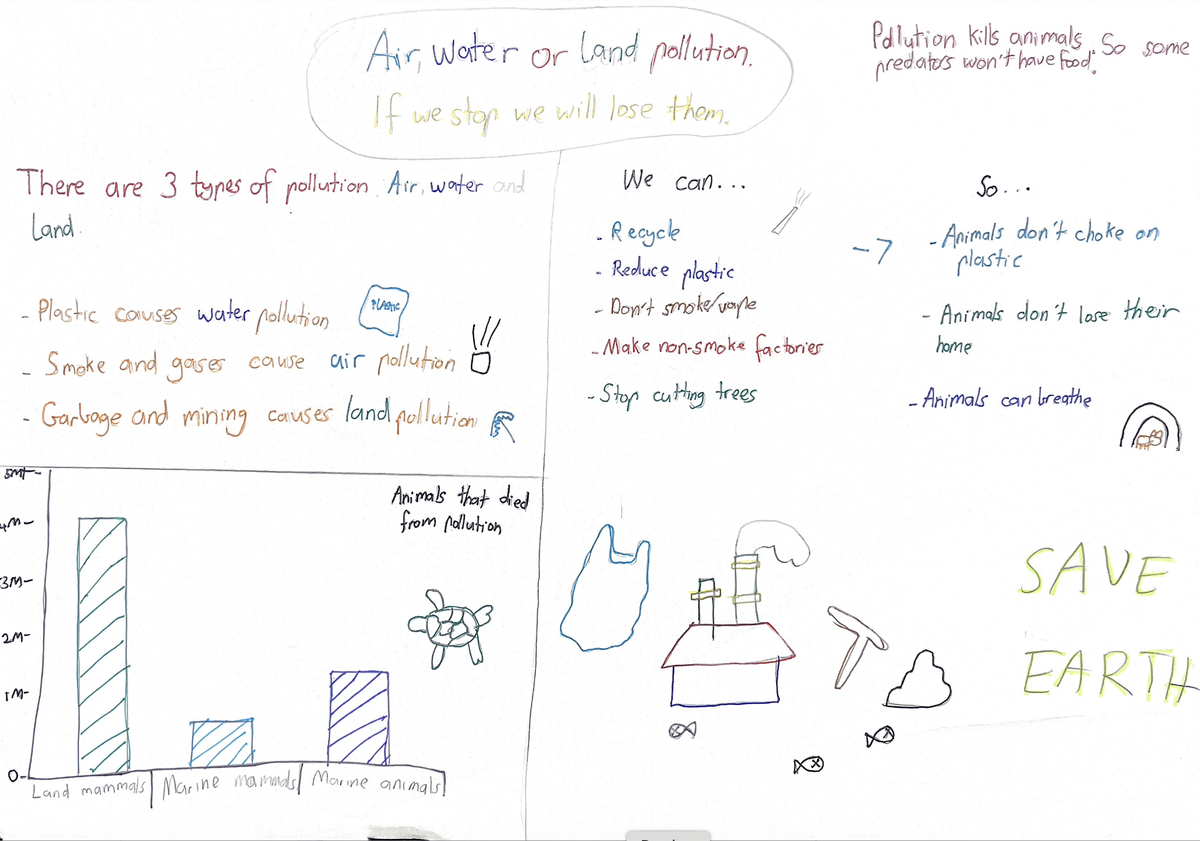 Air, Water or Land pollution.
If we stop we will lose them.
Pollution kills animals. So some
predators won't have food.
There are 3 types of pollution. Air, water and
Land.
- Plastic causes water pollution
PLASTIC
- Smoke and gases cause air pollution
- Garbage and mining causes land pollution
We can...
- Recycle
- Reduce plastic
- Don't smoke/vape
- Make non-smoke factories
- Stop cutting trees
So...
- Animals don't choke on
plastic
- Animals don't lose their
home
- Animals can breathe
Animals that died
from pollution
4M-
3M-
2M-
1M-
0-
Land mammals
Marine mammals
Marine animals
SAVE
EARTH